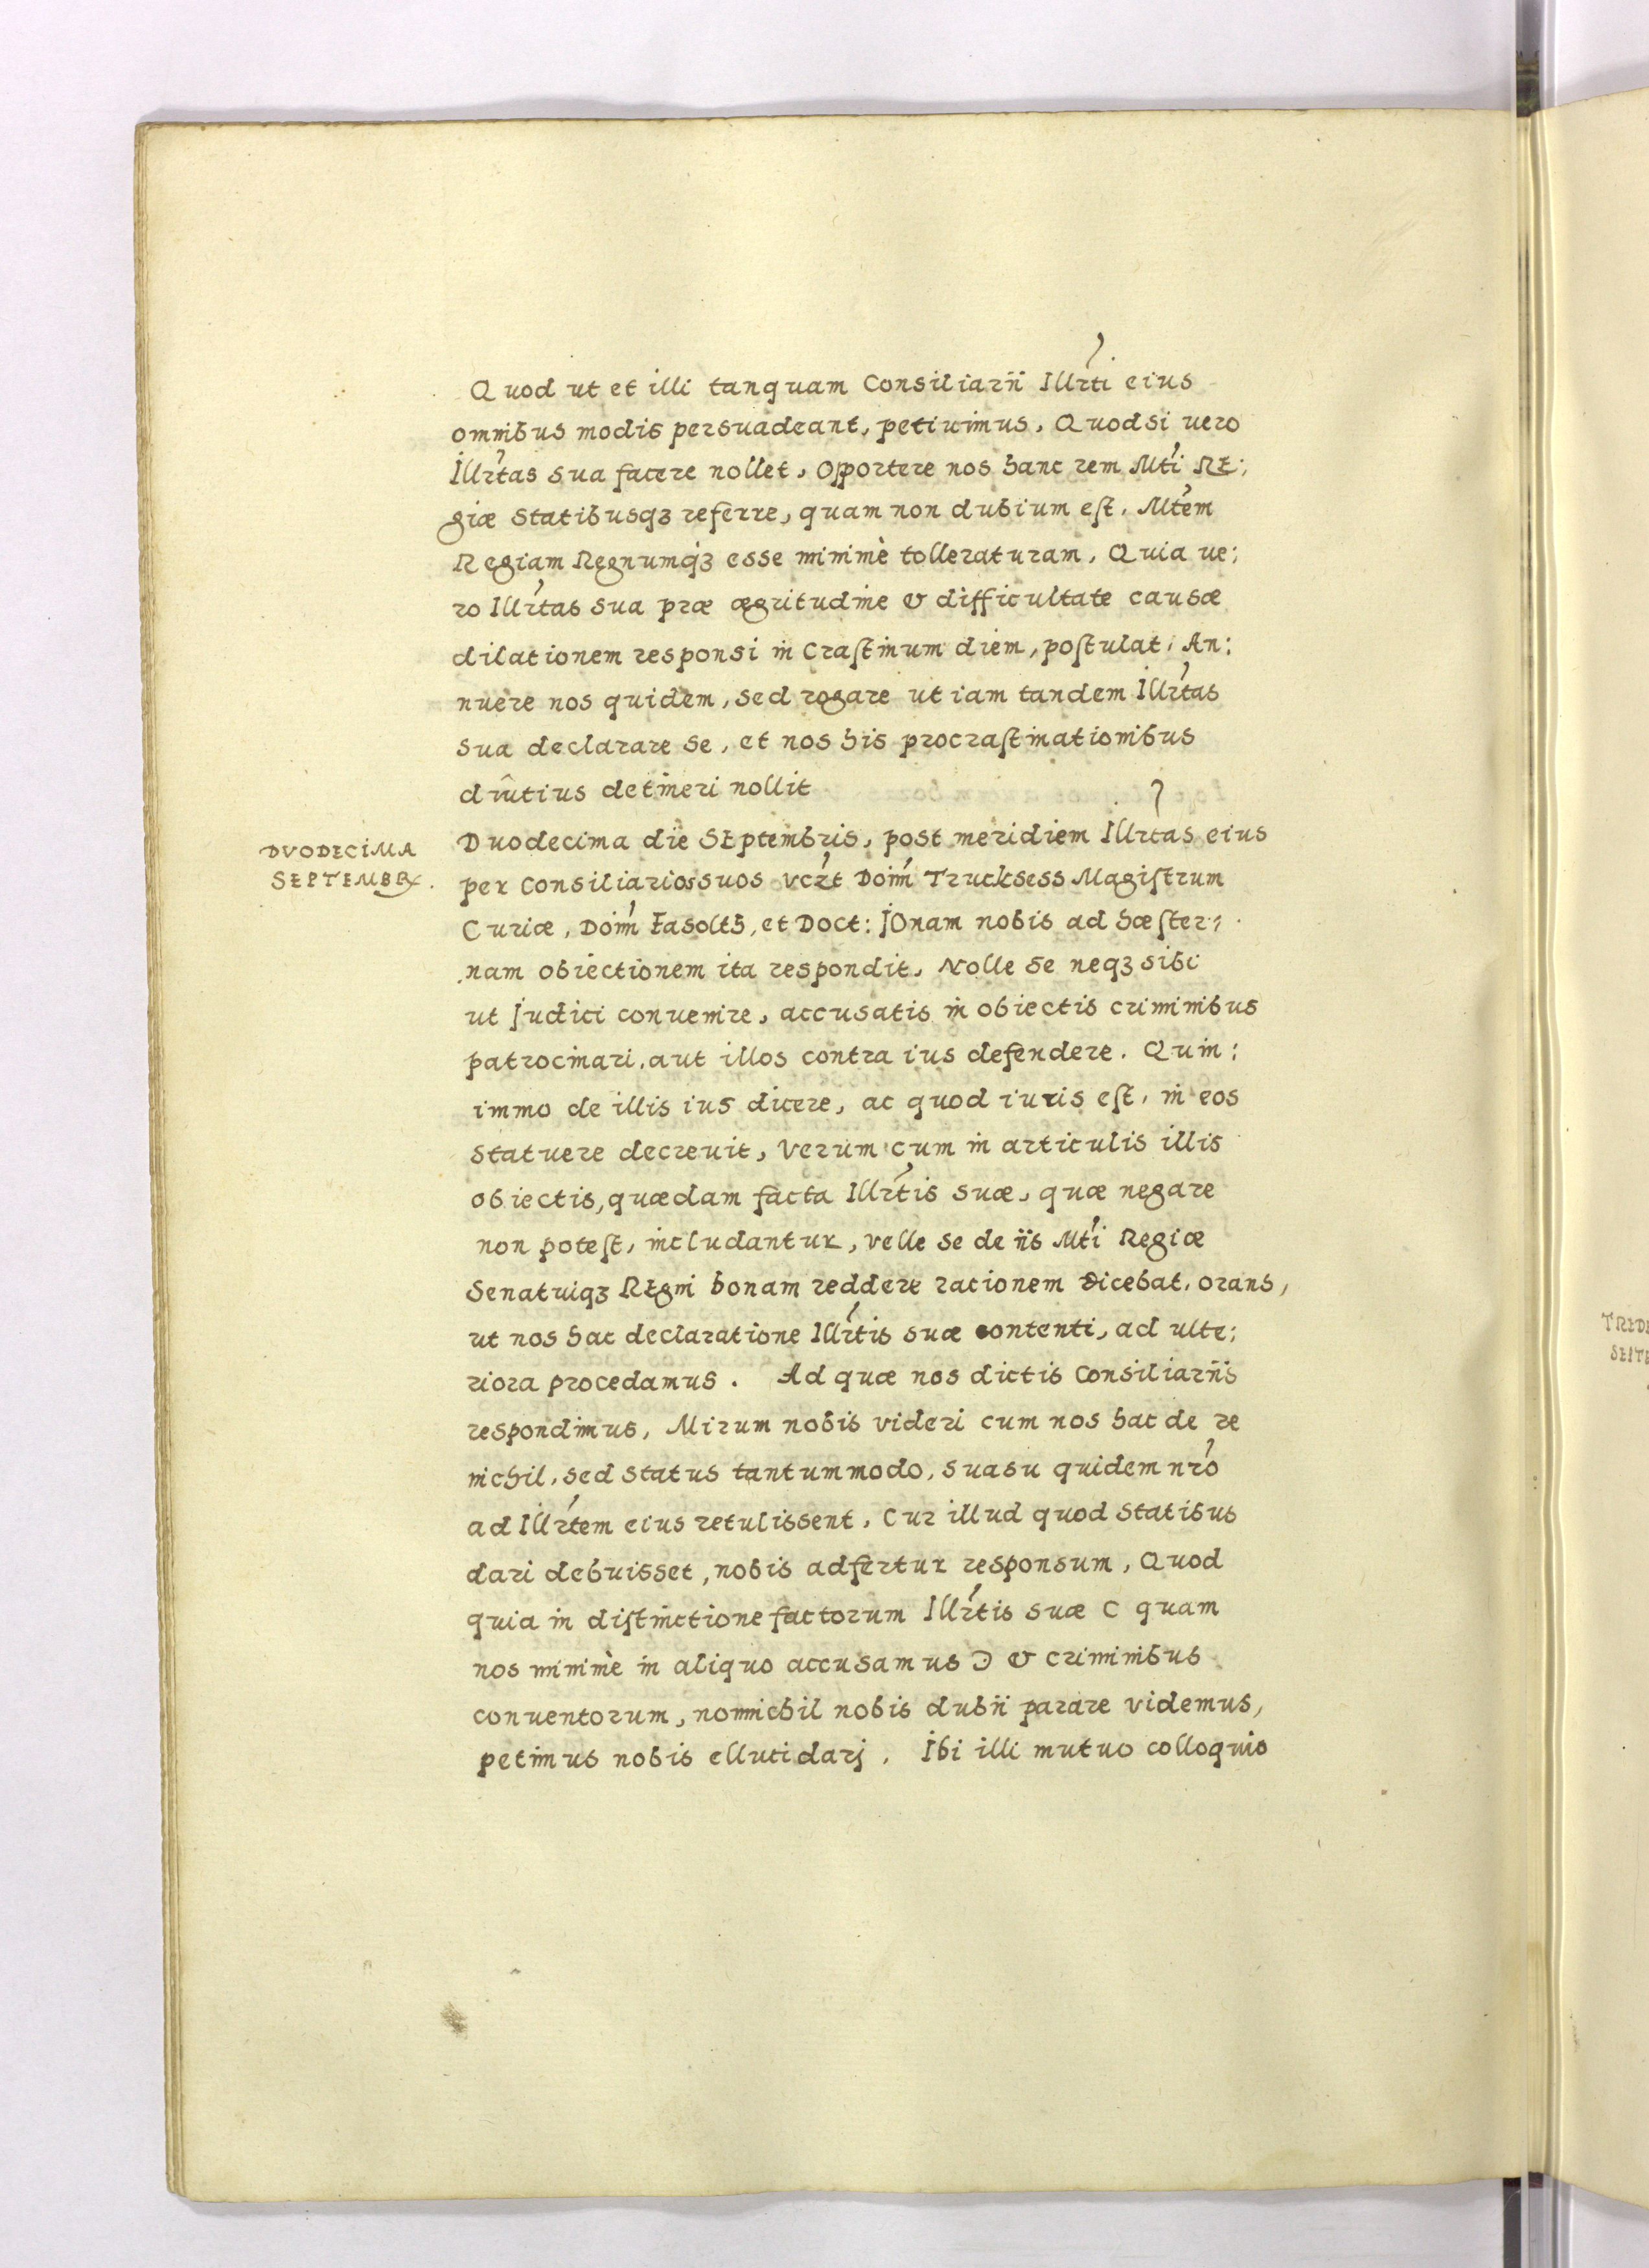 Quod ut et illi tanquam Consiliarii Illrti eius
omnibus modis persuadeant, petivimus, Quodsi uero
Illrtas sua facere nollet, opportere nos hanc rem Mti RE:
giæ Statibusqʒ referre, quam non dubium est, Mtem
Regiam Regnumqʒ esse minimè tolleraturam, Quia ue:
ro Illrtas sua præ ægritudine & difficultate causæ
dilationem responsi in Crastinum diem, postulat, An:
nuere nos quidem, sed rogare ut iam tandem Illrtas
sua declarare se, et nos his procrastinationibus
diutius detineri nollit
DVODECIMA
SEPTEMBR.
Duodecima die SEptembris, post meridiem Illrtas eius
per Consiliarios suos Vczt Doim Trucksess Magistrum
Curiæ, Doim Fasolth, et Doct: JOnam nobis ad hæster:
nam obiectionem ita respondit, Nolle se neqʒ sibi
ut Judici conuenire, accusatis in obiectis criminibus
patrocinari, aut illos contra ius defendere. Quin:
immo de illis ius dicere, ac quod iuris est, in eos
statuere decreuit, Verum cum in articulis illis
obiectis, quædam facta Illrtis suæ, quæ negare
non potest, includantur, velle se de iis Mti Regiæ
Senatuiqʒ REgni bonam reddere rationem dicebat, orans,
ut nos hac declaratione Illrtis suæ contenti, ad ulte:
riora procedamus. Ad quæ nos dictis Consiliariis
respondimus, Mirum nobis videri cum nos hac de re
nichil, sed status tantummodo, suasu quidem nro
ad Illrtem eius retulissent, Cur illud quod statibus
dari debuisset, nobis adfertur responsum, Quod
quia in distinctione factorum Illrtis suæ ( quam
nos minimè in aliquo accusamus ) & criminibus
conuentorum, nonnichil nobis dubii parare videmus,
petimus nobis ellucidarj. Ibi illi mutuo colloquio